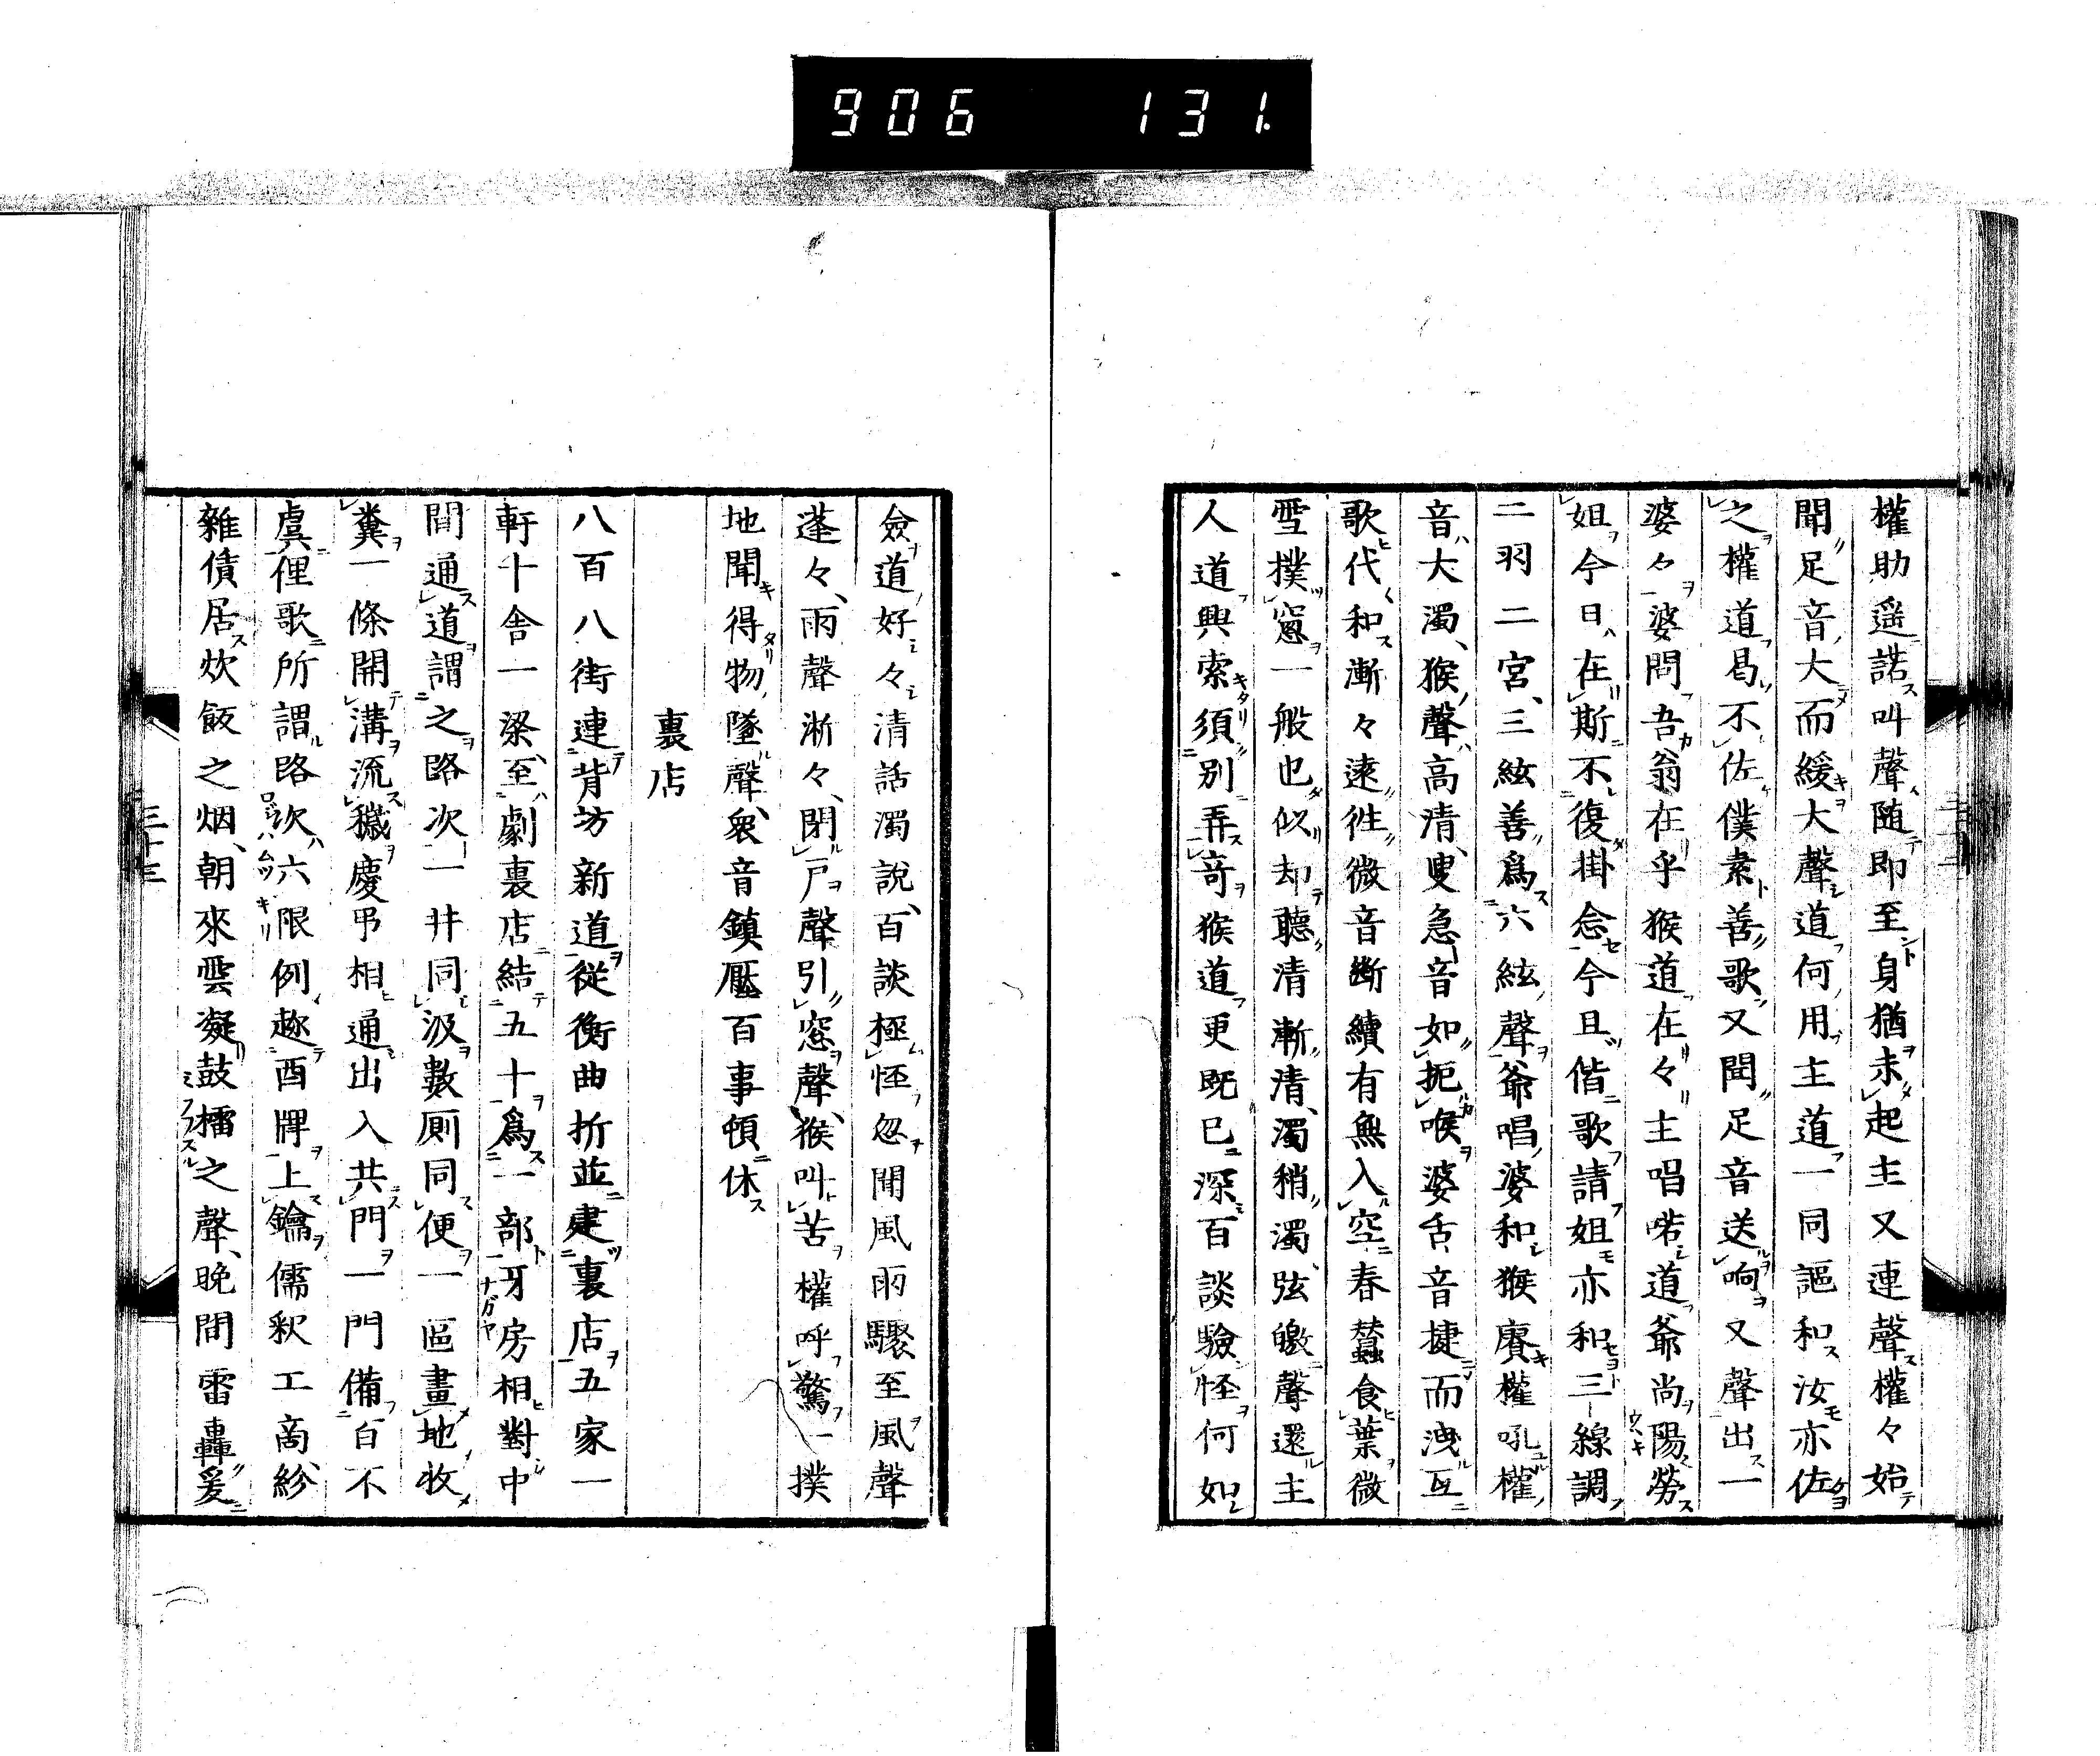 906 131.
權助遥諾叫聲随即至身猶未起主又連聲權々始
聞足音大而緩大聲道何用主道一同謳和汝亦佐
之權道曷不佐僕素善歌又聞足音送响又聲出一
婆々婆問吾翁在乎猴道在々主唱喏道爺尚陽勞
姐今日在斯不復掛念今且偕歌請姐亦和三線調
二羽二宮、三絃善爲六絃聲爺唱婆和猴賡權吼權
音大濁、猴聲高清、叟急音如扼喉婆舌音捷而洩互
歌代和漸々遠徃微音斷續有無入空春蠶食葉微
雪撲窻一般也似却聽清漸清、濁稍濁、弦皦聲還主
人道興索須別弄竒猴道更既已深百談驗怪何如
僉道好々清話濁說、百談極怪忽聞風雨驟至風聲
蓬々、雨聲淅々、閉戸聲引窓聲、猴叫苦權呼驚一撲
地聞得物墜聲、衆音鎮壓百事頓休
裏店
八百八街連背坊新道從衡曲折並建裏店五家一
軒十舎一梁、至劇裏店結五十爲一部牙房相對中
間通道謂之路次一井同汲數厠同便一區畫地收
糞一條開溝流穢慶弔相通出入共門一門備百不
虞俚歌所謂路次六限例趂酉牌上鑰儒釈工商、紾
雜債居炊飯之烟、朝來雲凝鼓櫺之聲、晩間雷轟爰
三十三